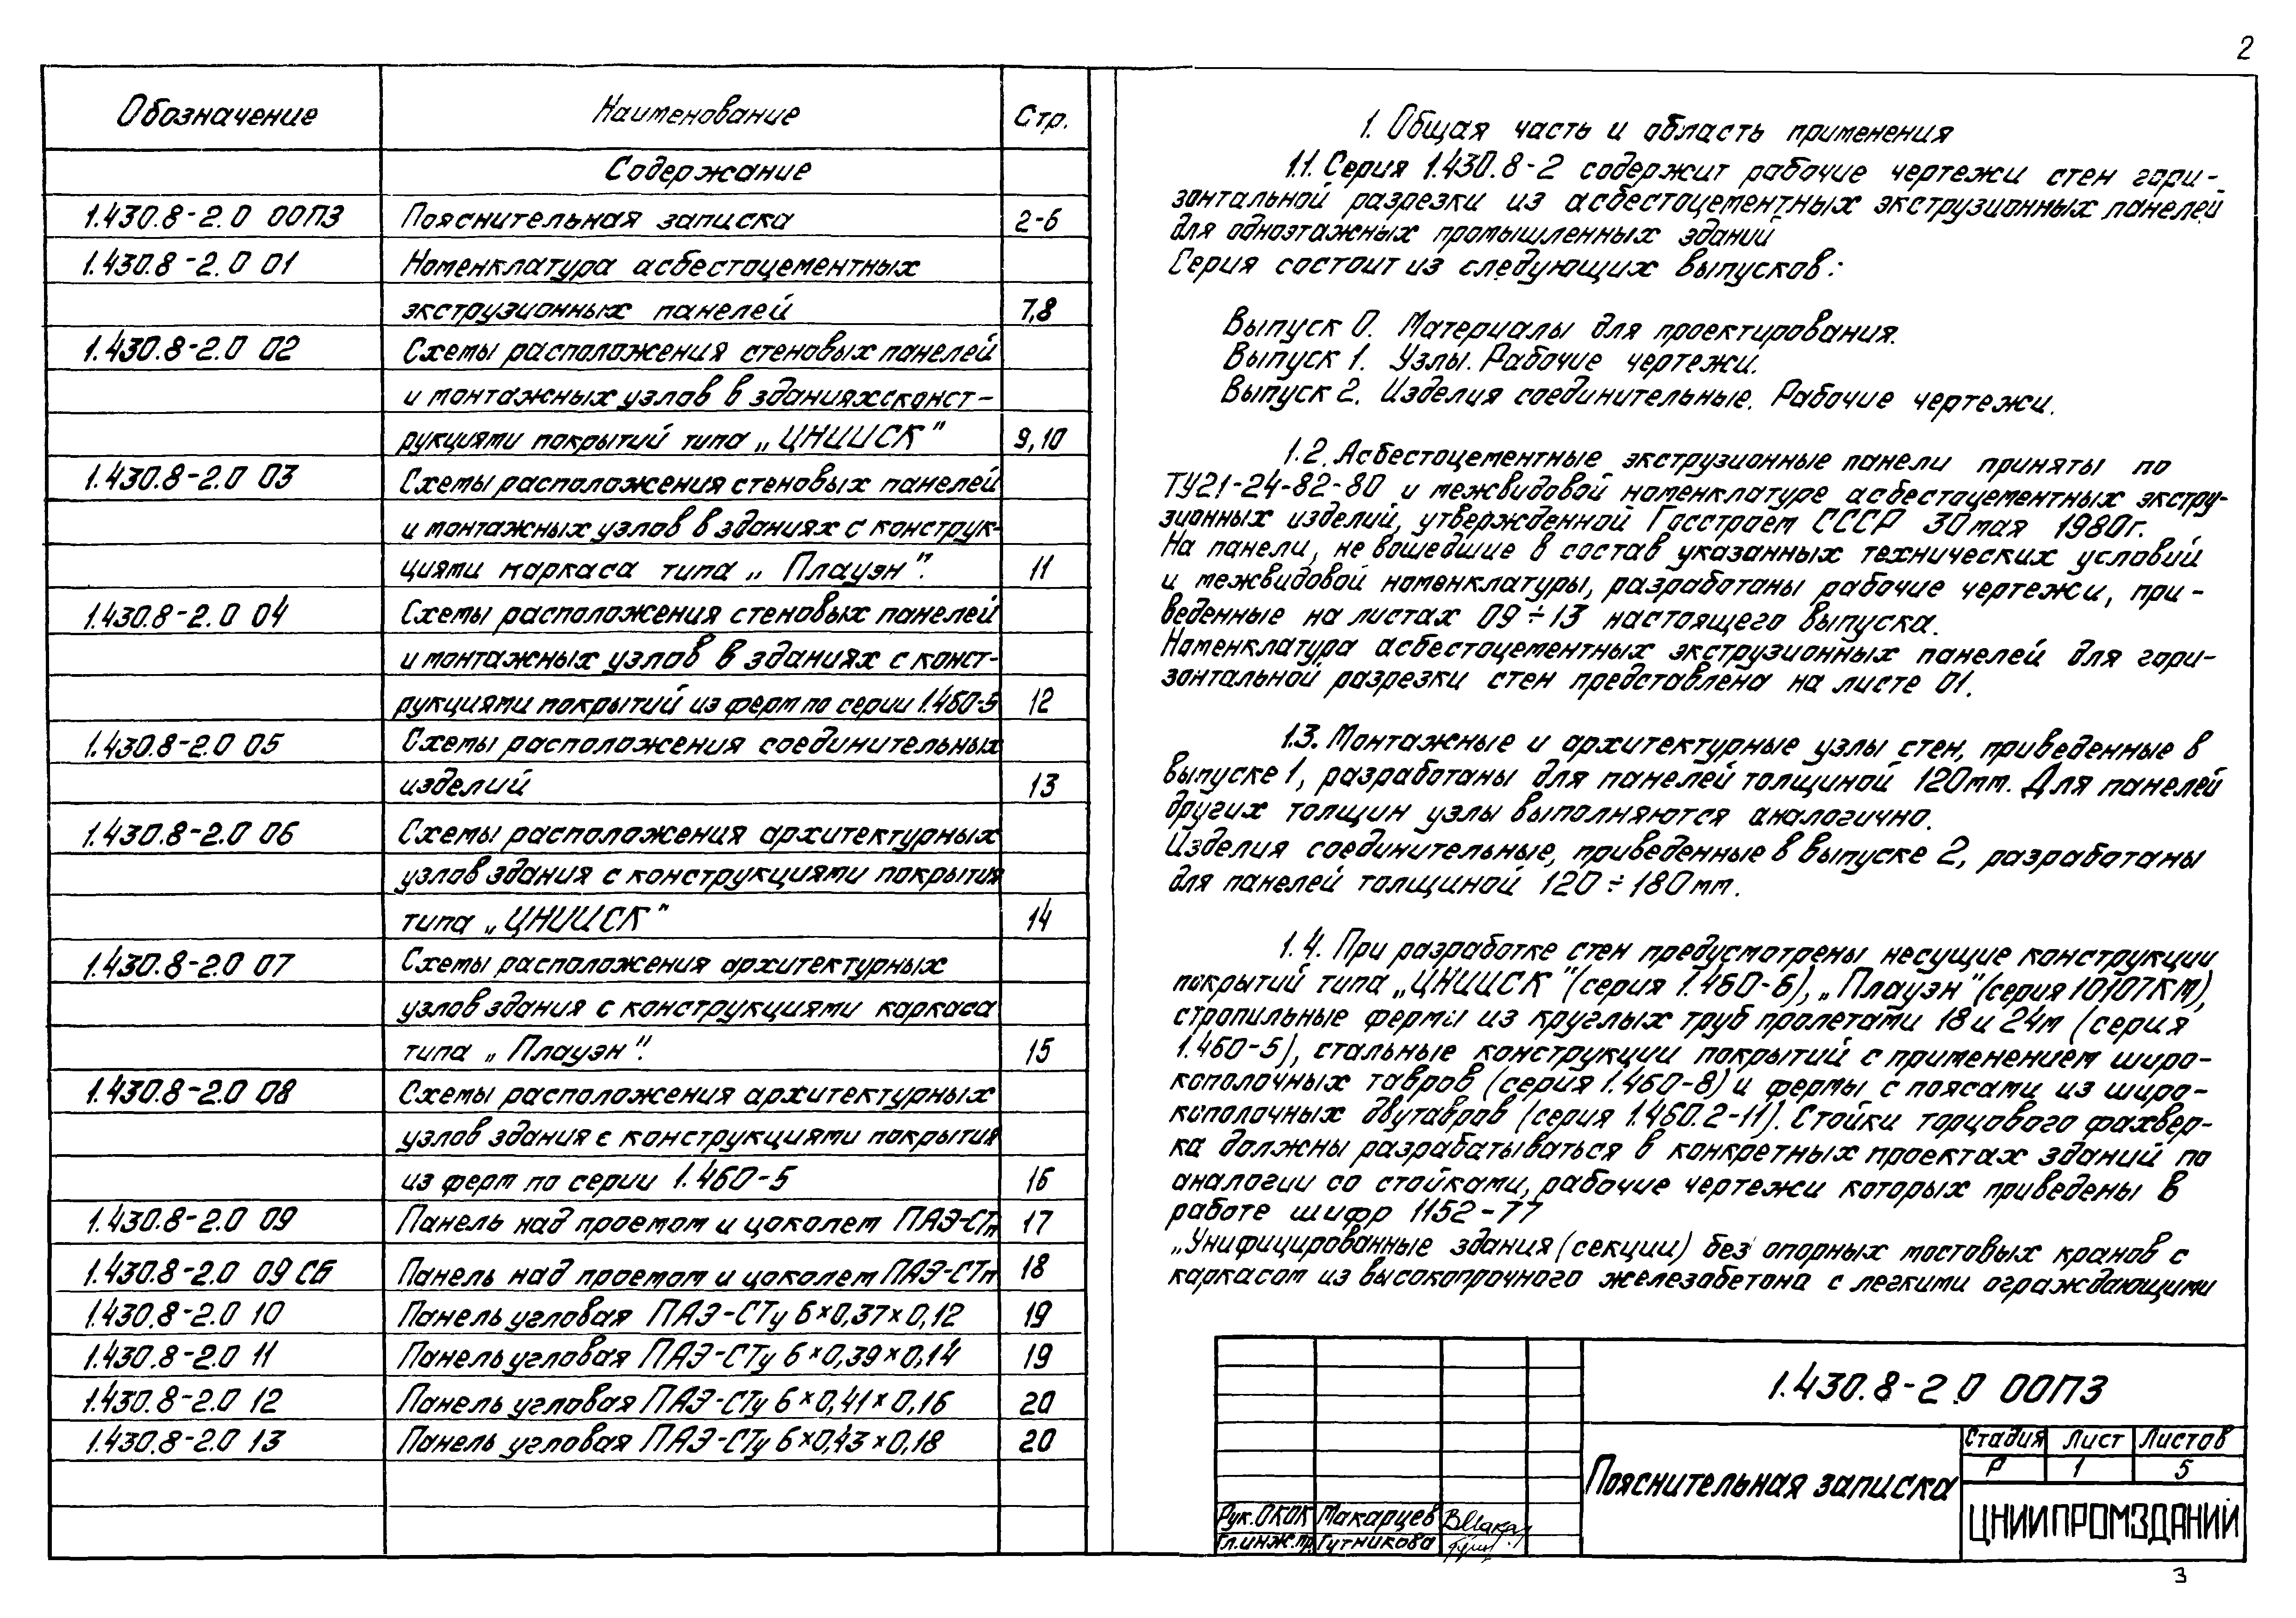 2
Обозначение Наименование Стр.
Содержание
1.430.8-2.0 00ПЗ Пояснительная записка 2-6
1.430.8-2.0 01 Номенклатура асбестоцементных
экструзионных панелей 7,8
1.430.8-2.0 02 Схемы расположения стеновых панелей
и монтажных узлов в зданияхсконст-
рукциями покрытий типа „ЦНИИСК" 9,10
1.430.8-2.0 03 Схемы расположения стеновых панелей
и монтажных узлов в зданиях с конструк-
циями каркаса типа „Плауэн". 11
1.430.8-2.0 04 Схемы расположения стеновых панелей
и монтажных узлов в зданиях с конст-
рукциями покрытий из ферм по серии 1.460-5 12
1.430.8-2.0 05 Схемы расположения соединительных
изделий 13
1.430.8-2.0 06 Схемы расположения архитектурных
узлов здания с конструкциями покрытия
типа „ЦНИИСК" 14
1.430.8-2.0 07 Схемы расположения архитектурных
узлов здания с конструкциями каркаса
типа „Плауэн". 15
1.430.8-2.0 08 Схемы расположения архитектурных
узлов здания с конструкциями покрытия
из ферм по серии 1.460-5 16
1.430.8-2.0 09 Панель над проемом и цоколем ПАЭ-СТп 17
1.430.8-2.0 09 СБ Панель над проемом и цоколем ПАЭ-СТп 18
1.430.8-2.0 10 Панель угловая ПАЭ-СТу 6×0,37×0,12 19
1.430.8-2.0 11 Панель угловая ПАЭ-СТу 6×0,39×0,14 19
1.430.8-2.0 12 Панель угловая ПАЭ-СТу 6×0,41×0,16 20
1.430.8-2.0 13 Панель угловая ПАЭ-СТу 6×0,43×0,18 20
1. Общая часть и область применения
1.1. Серия 1.430.8-2 содержит рабочие чертежи стен гори-
зонтальной разрезки из асбестоцементных экструзионных панелей
для одноэтажных промышленных зданий
Серия состоит из следующих выпусков:
Выпуск 0. Материалы для проектирования.
Выпуск 1. Узлы. Рабочие чертежи.
Выпуск 2. Изделия соединительные. Рабочие чертежи.
1.2. Асбестоцементные экструзионные панели приняты по
ТУ21-24-82-80 и межвидовой номенклатуре асбестоцементных экстру-
зионных изделий, утвержденной Госстроем СССР 30 мая 1980г.
На панели, не вошедшие в состав указанных технических условий
и межвидовой номенклатуры, разработаны рабочие чертежи, при-
веденные на листах 09÷13 настоящего выпуска.
Номенклатура асбестоцементных экструзионных панелей для гори-
зонтальной разрезки стен представлена на листе 01.
1.3. Монтажные и архитектурные узлы стен, приведенные в
выпуске 1, разработаны для панелей толщиной 120мм. Для панелей
других толщин узлы выполняются аналогично.
Изделия соединительные, приведенные в выпуске 2, разработаны
для панелей толщиной 120÷180мм.
1.4. При разработке стен предусмотрены несущие конструкции
покрытий типа „ЦНИИСК" (серия 1.460-6), „Плауэн" (серия 10107КМ),
стропильные фермы из круглых труб пролетами 18 и 24м (серия
1.460-5), стальные конструкции покрытий с применением широ-
кополочных тавров (серия 1.460-8) и фермы с поясами из широ-
кополочных двутавров (серия 1.460.2-11). Стойки торцового фахвер-
ка должны разрабатываться в конкретных проектах зданий по
аналогии со стойками, рабочие чертежи которых приведены в
работе шифр 1152-77
„Унифицированные здания (секции) без опорных мостовых кранов с
каркасом из высокопрочного железобетона с легкими ограждающими
1.430.8-2.0 00ПЗ
Пояснительная записка
Стадия Лист Листов
Р 1 5
ЦНИИПРОМЗДАНИЙ
Рук.ОКОК Макарцев
Гл.инж.пр. Гутникова
3